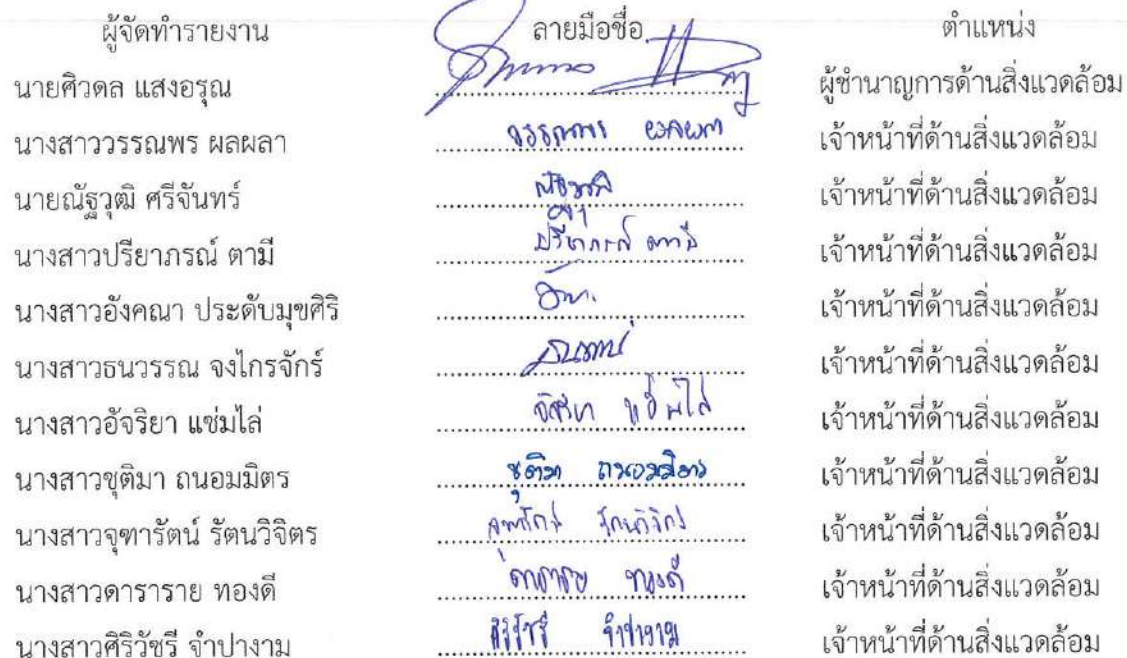 ผู้จัดทำรายงาน ลายมือชื่อ ตำแหน่ง
นายศิวดล แสงอรุณ ผู้ชำนาญการด้านสิ่งแวดล้อม
นางสาววรรณพร ผลผลา วรรณพร ผลผลา เจ้าหน้าที่ด้านสิ่งแวดล้อม
นายณัฐวุฒิ ศรีจันทร์ ณัฐวุฒิ เจ้าหน้าที่ด้านสิ่งแวดล้อม
นางสาวปรียาภรณ์ ตามี ปรียาภรณ์ ตามี เจ้าหน้าที่ด้านสิ่งแวดล้อม
นางสาวอังคณา ประดับมุขศิริ เจ้าหน้าที่ด้านสิ่งแวดล้อม
นางสาวธนวรรณ จงไกรจักร์ เจ้าหน้าที่ด้านสิ่งแวดล้อม
นางสาวอัจริยา แซ่มไล่ อัจริยา แซ่มไล่ เจ้าหน้าที่ด้านสิ่งแวดล้อม
นางสาวชุติมา ถนอมมิตร ชุติมา ถนอมมิตร เจ้าหน้าที่ด้านสิ่งแวดล้อม
นางสาวจุฑารัตน์ รัตนวิจิตร จุฑารัตน์ รัตนวิจิตร เจ้าหน้าที่ด้านสิ่งแวดล้อม
นางสาวดาราราย ทองดี ดาราราย ทองดี เจ้าหน้าที่ด้านสิ่งแวดล้อม
นางสาวศิริวัชรี จำปางาม ศิริวัชรี จำปางาม เจ้าหน้าที่ด้านสิ่งแวดล้อม